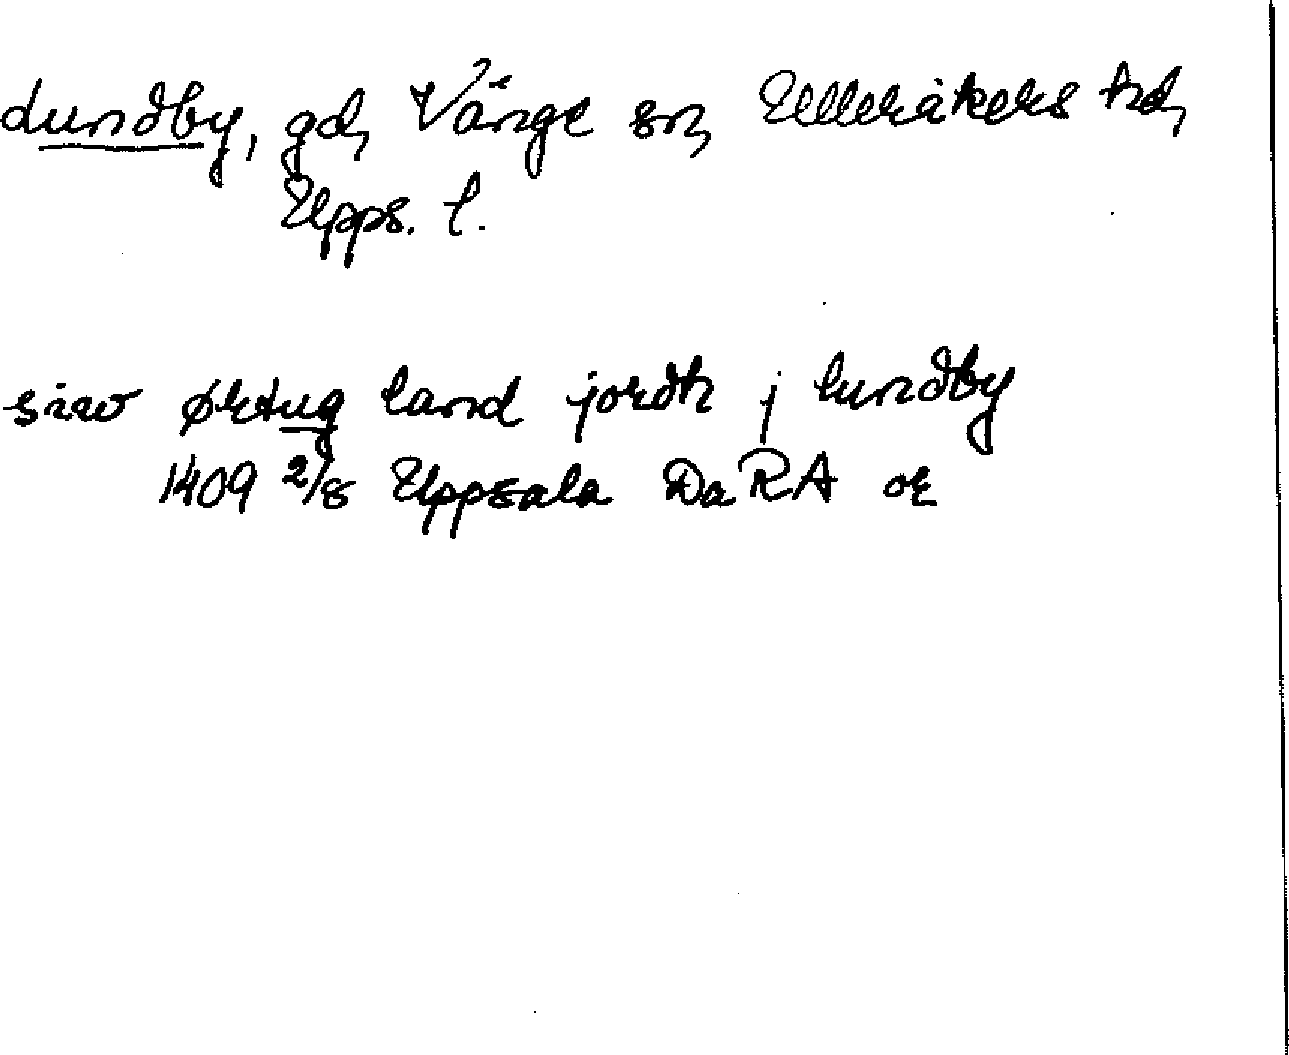 Lundby, gd, Vänge sn, Ulleråkers hd,
Upps. l.
siav ørtug land jordh j lundby
1409 2/8 Uppsala DaRA or